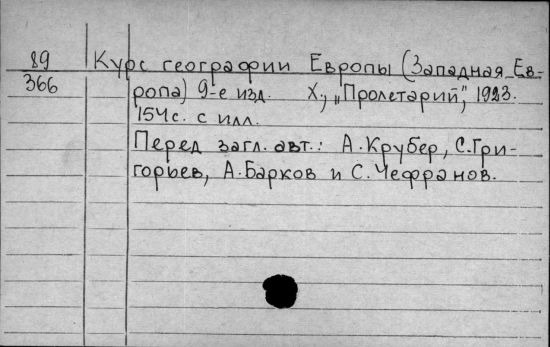 89 Курс географии Европы (Западная Ев-
366 ропа) 9-е изд. Х., „Пролетарий", 1923.
154с. с илл.
Перед загл. авт.: А.Крубер, С.Гри-
горьев, А.Барков и С.Чефранов.